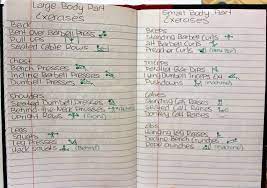 Large Body Part
Exercises
Back
Bent Over Barbell Press
Pull Ups
Seated Cable Rows
Chest
Bench Presses
Incline Barbell Presses
Dumbell Presses
Shoulders
Seated Dumbell Presses
Behind-the-Neck Presses
Upright Rows
Legs
Squats
Leg Presses
Hack Squats
Small Body Part
Exercises
Biceps
Standing Barbell Curls
Barbell Curls
Preacher Curls
Triceps
Parallel Bar Dips
Lying Dumbell Triceps Ext.
Pushdowns
Calves
Standing Calf Raises
Seated Calf Raises
Donkey Calf Raises
Abs
Hanging Leg Raises
Decline Bench Crunches
Rope Crunches